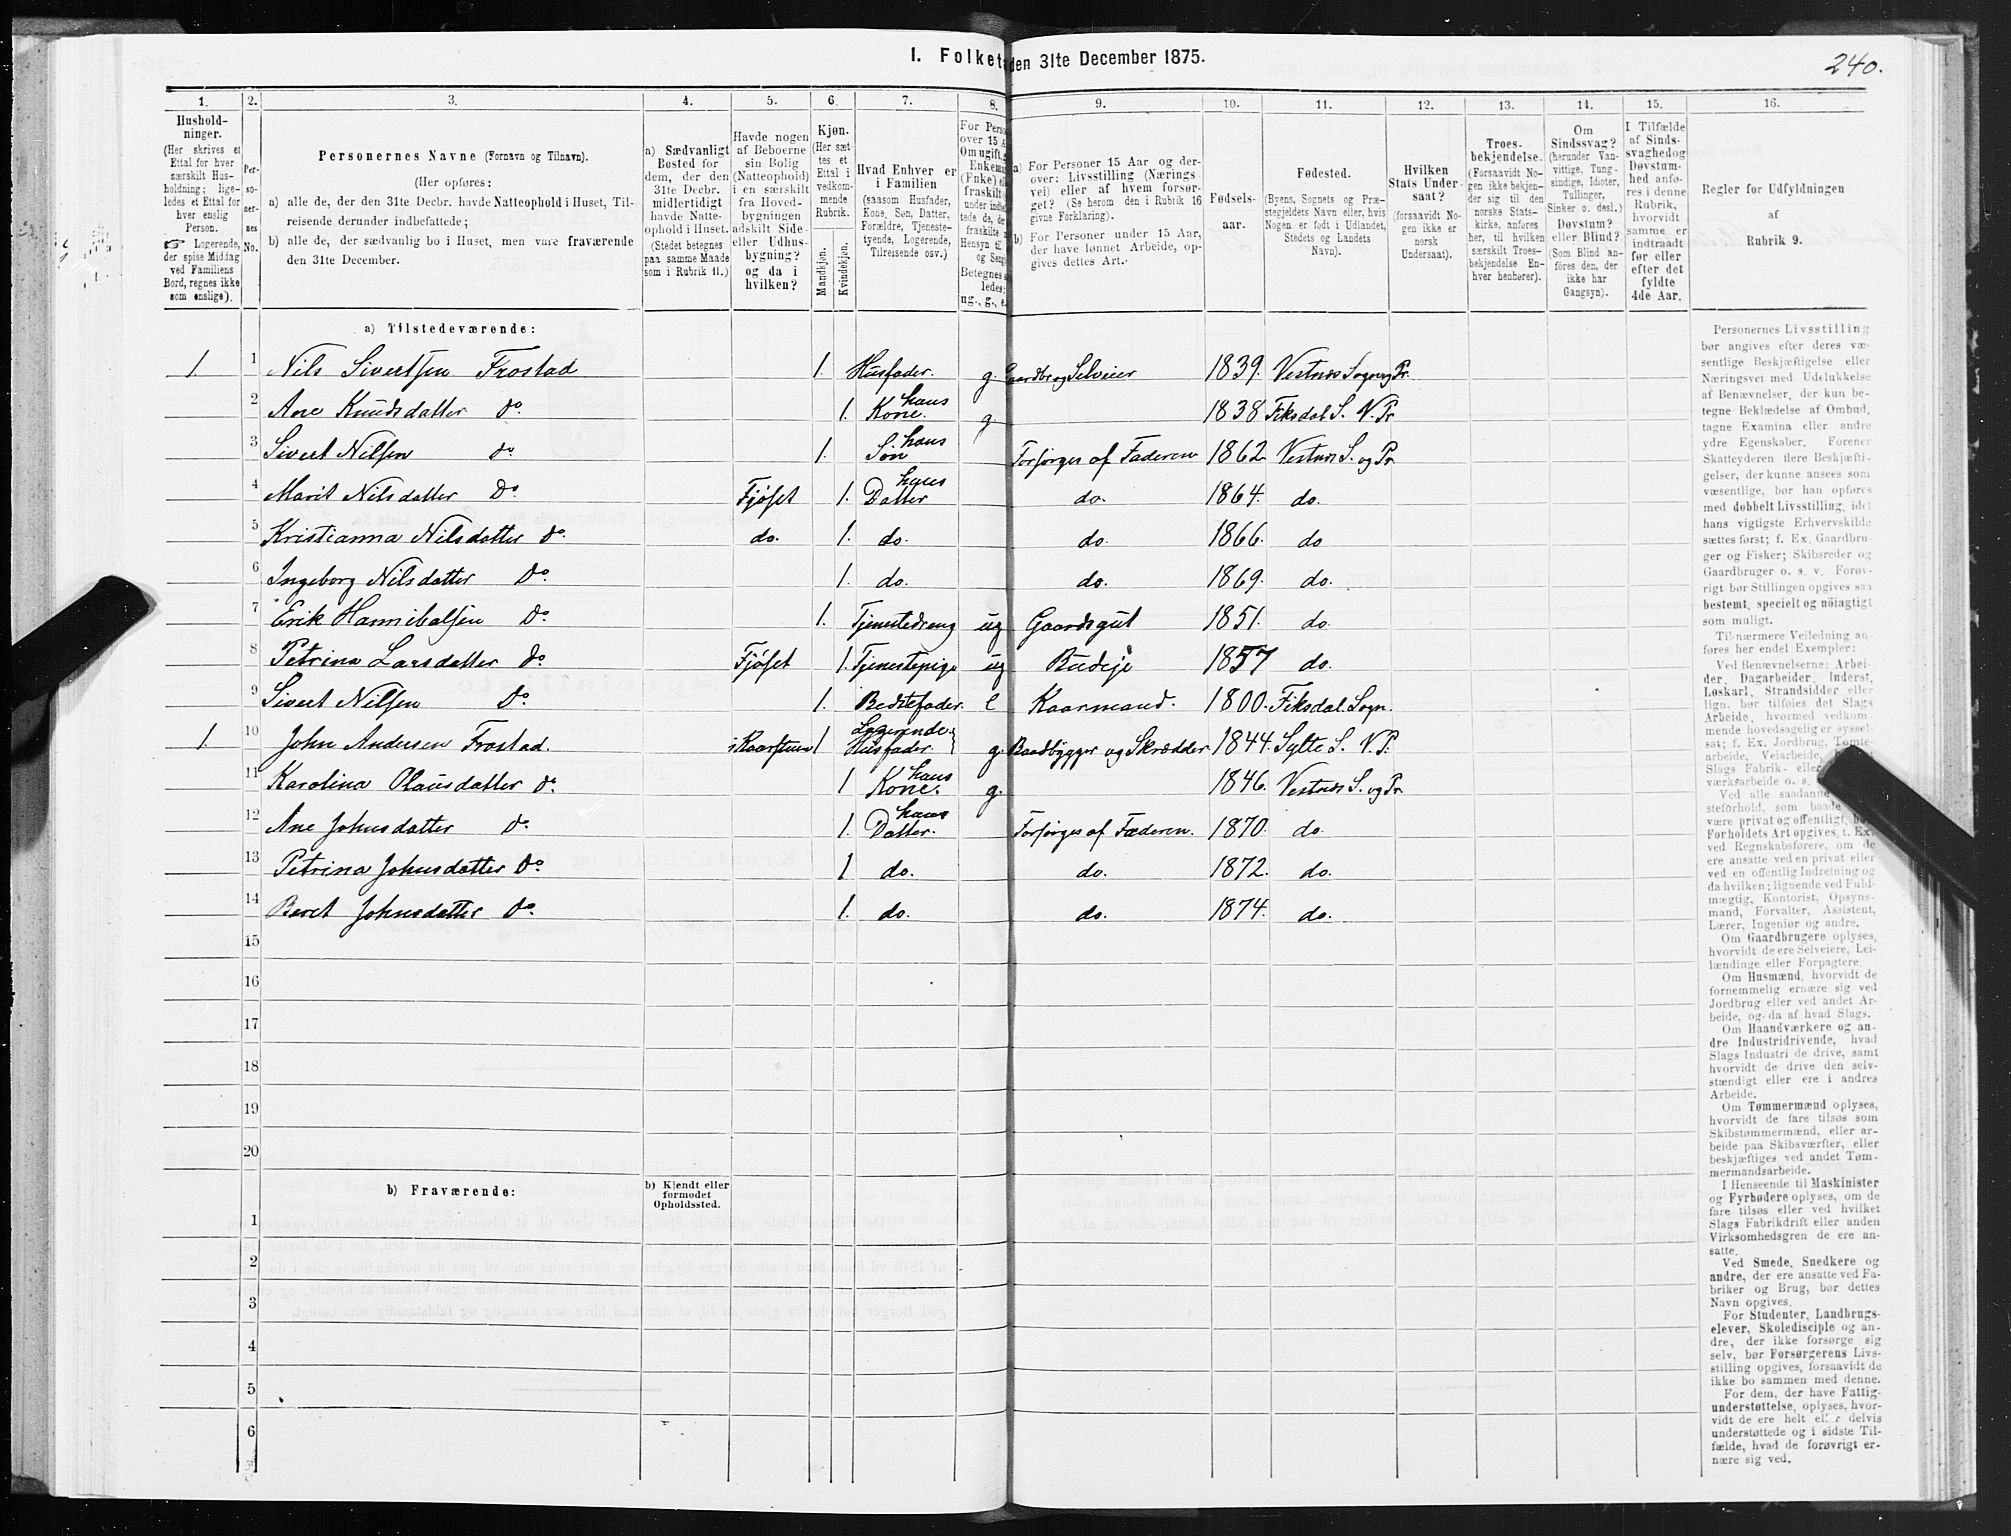 I. Folket den 31te December 1875.
240.
1. 2. 3. 4. 5. 6. 7. 8. 9. 10. 11. 12. 13. 14. 15. 16.
Hushold-
ninger.
(Her skrives et
Ettal for hver
særskilt Hus-
holdning; lige-
ledes et Ettal for
hver enslig
Person.
☞ Logerende,
der spise Middag
ved Familiens
Bord, regnes ikke
som enslige).
Per-
so-
ner-
nes
No.
Personernes Navne (Fornavn og Tilnavn).
(Her opføres:
a) alle de, der den 31te Decbr. havde Natteophold i Huset, Til-
reisende derunder indbefattede;
b) alle de, der sædvanlig bo i Huset, men vare fraværende
den 31te December.
a) Sædvanligt
Bosted for
dem, der den
31te Decbr.
midlertidigt
havde Natte-
ophold i Huset.
(Stedet betegnes
paa samme Maade
som i Rubrik 11.)
Havde nogen
af Beboerne
sin Bolig
(Natteophold)
i en særskilt
fra Hoved-
bygningen
adskilt Side-
eller Udhus-
bygning?
og da i
hvilken?
Kjøn.
(Her sæt-
tes et
Ettal i
vedkom-
mende
Rubrik.
Mandkjøn.
Kvindekjøn.
Hvad Enhver er
i Familien
(saasom Husfader,
Kone, Søn, Datter,
Forældre, Tjeneste-
tyende, Logerende,
Tilreisende osv.)
For Pers
over 15 A
Om ugift,
Enkem
(Enke) el
fraskilt
under ind
tede de, de
fraskilte
Hensyn til
og Seng
Betegnes
ledes:
ug., g., e.
a) For Personer 15 Aar og der-
over: Livsstilling (Nærings
vei) eller af hvem forsør-
get? (Se herom den i Rubrik 16
givne Forklaring).
b) For Personer under 15 Aar,
der have lønnet Arbeide, op-
gives dettes Art.
Fødsels-
aar.
Fødested.
(Byens, Sognets og Præ-
stegjeldets Navn eller, hvis
Nogen er født i Udlandet,
Stedets og Landets
Navn).
Hvilken
Stats Under-
saat?
(forsaavidt No-
gen ikke er
norsk
Undersaat).
Troes-
bekjendelse.
(Forsaavidt No-
gen ikke bekjen-
der sig til den
norske Stats-
kirke, anføres
her, til hvilken
særskilt Troes-
bekjendelse En-
hver henhører).
Om
Sindssvag?
(herunder Van-
vittige, Tung-
sindige, Idioter,
Tullinger,
Sinker o. desl.)
Døvstum?
eller Blind?
(Som Blind an-
føres den, der
ikke har
Gangsyn).
I Tilfælde
af Sinds-
svaghed og
Døvstum-
hed anfø-
res i denne
Rubrik,
hvorvidt
samme er
indtraadt
før eller
efter det
fyldte
4de Aar.
Regler for Udfyldningen
af
Rubrik 9.
a) Tilstedeværende:
1 1 Nils Sivertsen Frostad 1. Husfader. g. Gaardbr og Selveier 1839. Vestnes Sogn og Pr.
2 Ane Knudsdatter Do. 1. hans Kone. g 1838 Fiksdal S. V. Pr
3 Sivert Nilsen do. 1. hans Søn Forsørges af Faderen 1862 Vestnes S. og Pr
4 Marit Nilsdatter Do. Fjøset 1. hans Datter do. 1864. do.
5 Kristianna Nilsdatter do. do. 1. do. do. 1866. do
6 Ingeborg Nilsdatter do. 1. do. do. 1869. do.
7 Erik Hannibalsen do. 1. Tjenestedreng ug Gaardsgut 1851. do.
8 Petrina Larsdatter do. Fjøset 1. Tjenestepige ug Budeje 1857 do.
9 Sivert Nilsen do. 1. Bedstefader. e Kaarmand. 1800. Fiksdal Sogn.
1. 10 John Andersen Frostad. i Kaarstuen 1 Logerende Husfader. g. Baadbygger og Skrædder 1844. Sylte S. V. P.
11 Karolina Olausdatter do. 1 hans Kone. g. 1846. Vestnes S. og Pr
12 Ane Johnsdatter do. 1. hans Datter. Forsørges af Faderen. 1870. do.
13 Petrina Johnsdatter do. 1 do. do. 1872. do.
14 Beret Johnsdatter do. 1. do. do. 1874. do.
15
16
17
18
19
20
b) Fraværende:
b) Kjendt eller
formodet
Opholdssted.
1
2
3
4
5
6
Personernes Livsstilling
bør angives efter deres væ-
sentlige Beskjæftigelse eller
Næringsvei med Udelukkelse
af Benævnelser, der kun be-
tegne Beklædelse af Ombud,
tagne Examina eller andre
ydre Egenskaber. Forener
Skatteyderen flere Beskjæfti-
gelser, der kunne ansees som
væsentlige, bør han opføres
med dobbelt Livsstilling, idet
hans vigtigste Erhvervskilde
sættes først; f. Ex. Gaardbru-
ger og Fisker; Skibsreder og
Gaardbruger o. s. v. Forøv-
rigt bør Stillingen opgives saa
bestemt, specielt og nøiagtigt
som muligt.
Til nærmere Veiledning an-
føres her endel Exempler:
Ved Benævnelserne: Arbei-
der, Dagarbeider, Inderst,
Løskarl, Strandsidder eller
lign. bør tilføies det Slags
Arbeide, hvormed vedkom-
mende hovedsagelig er syssel-
sat; f. Ex. Jordbrug, Tomte-
arbeide, Veiarbeide,
Slags Fabrik- eller
værksarbeide o. s.
Ved alle saadanne
steforhold, som baade
være privat og offentlig,
Forholdets Art opgives, t. Ex.
ved Regnskabsførere, om de
ere ansatte ved en privat eller
ved en offentlig Indretning og
da hvilken; lignende ved Fuld-
mægtig, Kontorist, Opsyns-
mand, Forvalter, Assistent,
Lærer, Ingeniør og andre.
Om Gaardbrugere oplyses,
hvorvidt de ere Selveiere, Lei-
lændinge eller Forpagtere.
Om Husmænd, hvorvidt de
fornemmelig ernære sig ved
Jordbrug eller ved andet Ar-
beide, og da af hvad Slags.
Om Haandværkere og an-
dre Industridrivende, hvad
Slags Industri de drive, samt
hvorvidt de drive den selv-
stændigt eller ere i andres
Arbeide.
Om Tømmermænd oplyses,
hvorvidt de fare tilsøs som
Skibstømmermænd, eller ar-
beide paa Skibsværfter, eller
beskjæftiges ved andet Tøm-
mermandsarbeide.
I Henseende til Maskinister
og Fyrbødere oplyses, om de
fare tilsøs eller ved hvilket
Slags Fabrikdrift eller anden
Virksomhedsgren de ere an-
satte.
Ved Smede, Snedkere og
andre, der ere ansatte ved Fa-
briker og Brug, bør dettes
Navn opgives.
For Studenter, Landbrugs-
elever, Skoledisciple og an-
dre, der ikke forsørge sig
selv, bør Forsørgerens Livs-
stilling opgives, forsaavidt de
ikke bo sammen med denne.
For dem, der have Fattig-
understøttelse, oplyses, hvor-
vidt de ere helt eller delvis
understøttede og i sidste Til-
fælde, hvad de forøvrigt er-
nære sig ved.